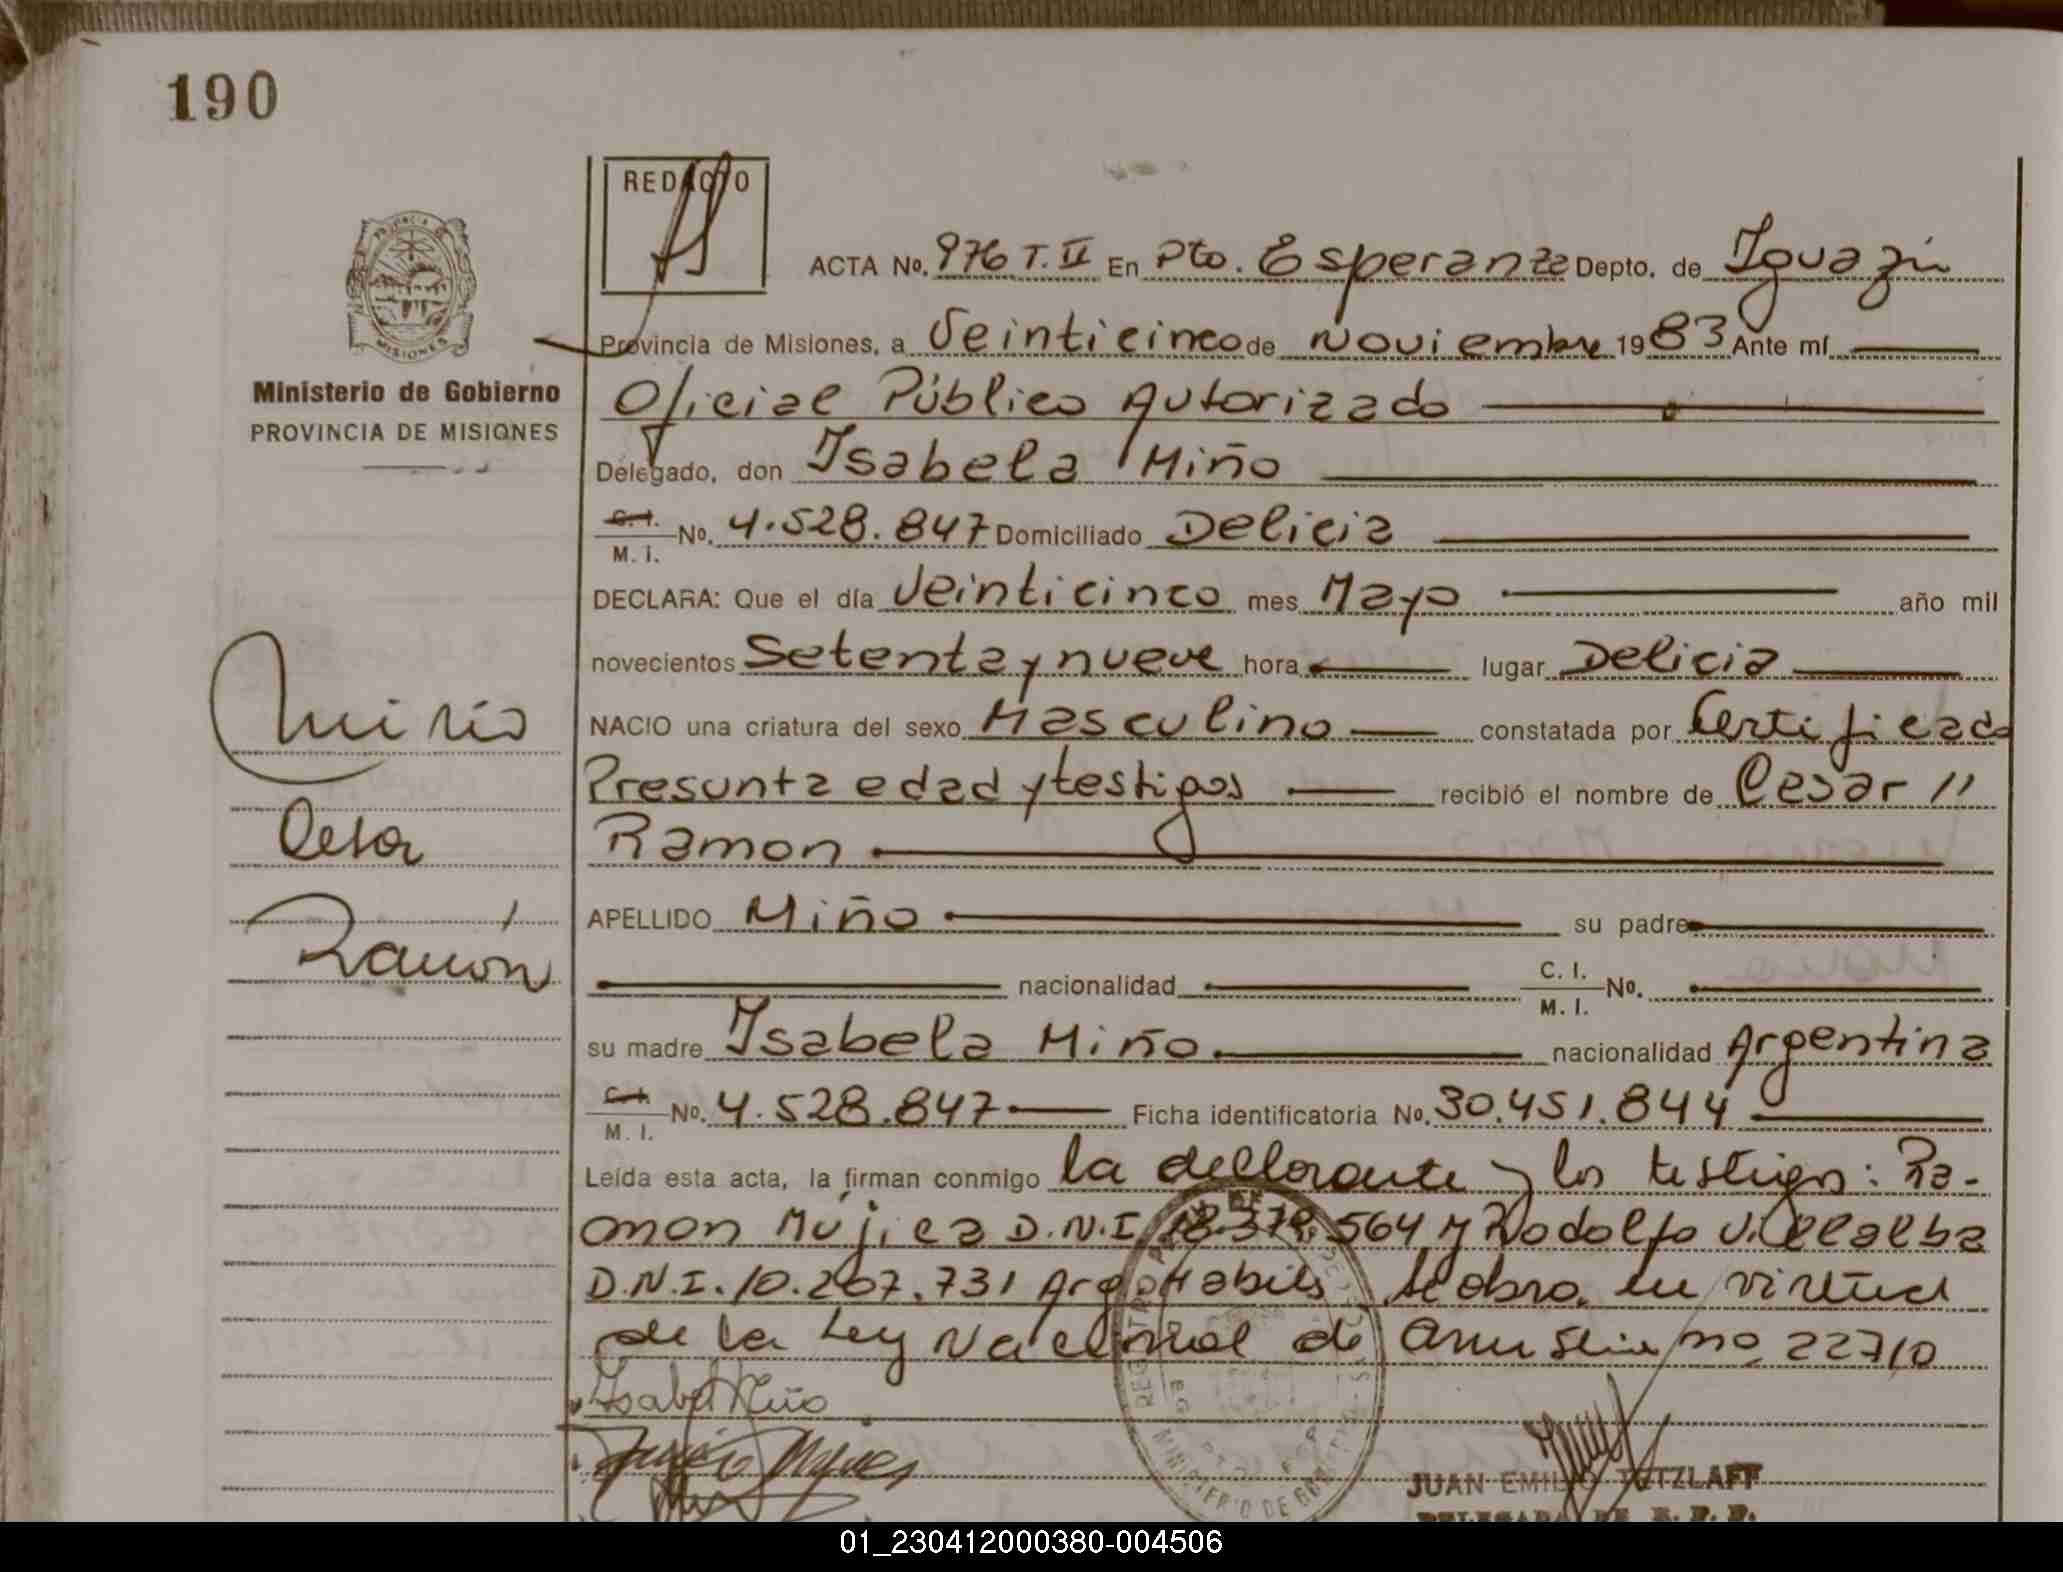 190
REDACTO
ACTA No. 976 T. II En Pto. Esperanza Depto. de Iguazú
Provincia de Misiones, a Veinticinco de Noviembre 1983 Ante mí
Ministerio de Gobierno
PROVINCIA DE MISIONES
Oficial Público Autorizado
Delegado, don Isabela Miño
C. I.
M. I. No. 4.528.847 Domiciliado Delicia
DECLARA: Que el día Veinticinco mes Mayo año mil
novecientos Setenta y nueve hora lugar Delicia
Miño
NACIO una criatura del sexo Masculino constatada por Certificado
Presunta edad y testigos recibió el nombre de Cesar //
Cesar
Ramon
Ramón
APELLIDO Miño su padre
nacionalidad C. I. M. I. No.
su madre Isabela Miño. nacionalidad Argentina
C. I.
M. I. No. 4.528.847 Ficha identificatoria No. 30.451.844
Leída esta acta, la firman conmigo la declarante y los testigos: Ra-
mon Mújica D.N.I. 564 y Rodolfo Villalba
D.N.I. 10.207.731 Arg. Habils Se labra en virtud
de la Ley Nacional de Amnistia no 22710
Isabel Miño
MISIONES
MINISTERIO DE GOBIERNO
JUAN EMILIO TETZLAFF
DELEGADA DE R. P. P.
01_230412000380-004506